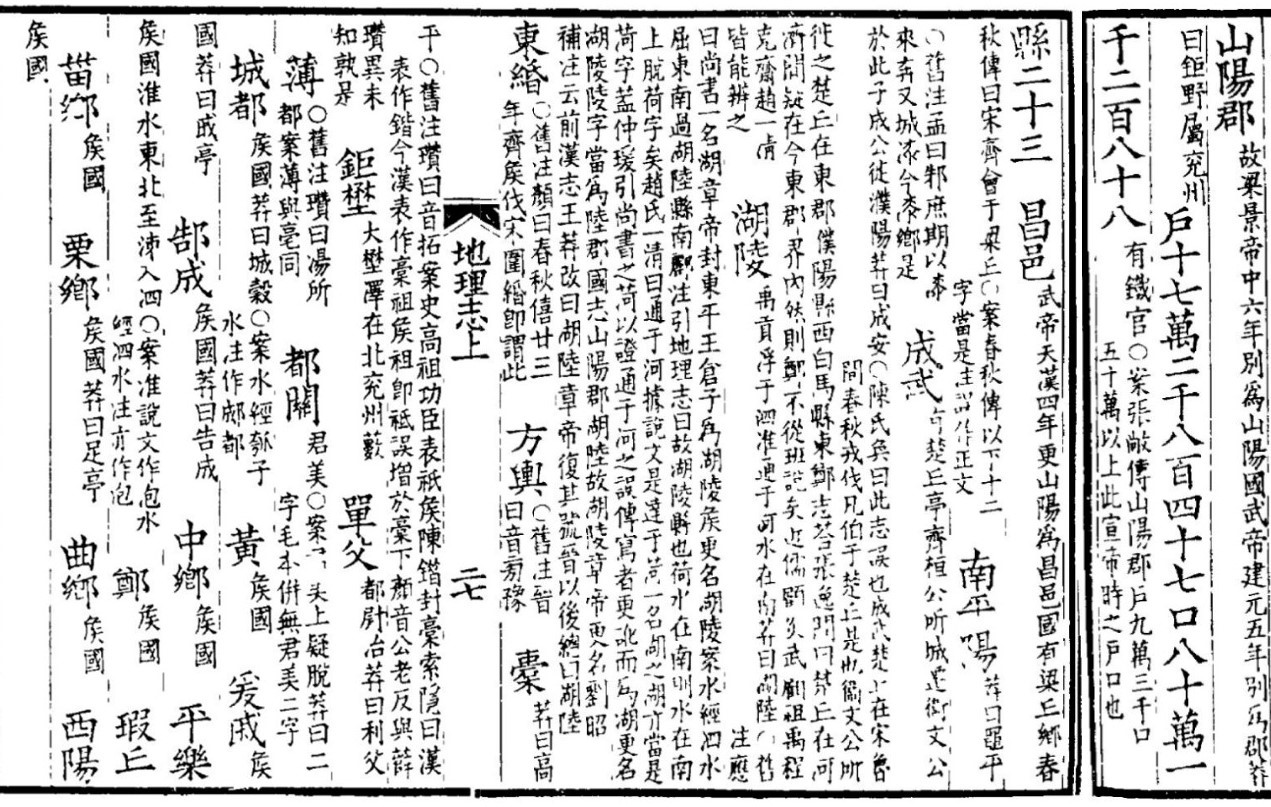 山陽郡 故梁景帝中六年別爲山陽國武帝建元五年別爲郡莽
曰鉅野屬兖州 戶十七萬二千八百四十七口八十萬一
千二百八十八 有鐵官○案張敞傳山陽郡戶九萬三千口
五十萬以上此宣帝時之戶口也
縣二十三 昌邑 武帝天漢四年更山陽爲昌邑國有梁丘鄉春
秋傳曰宋齊會于梁丘○案春秋傳以下十二
字當是注誤作正文 南平陽 莽曰黽平
○舊注孟曰邾庶期以漆
來奔又城漆今漆鄉是 成武 有楚丘亭齊桓公所城遷衛文公
於此子成公徙濮陽莽曰成安○陳氏奐曰此志誤也成武楚丘在宋魯
間春秋戎伐凡伯于楚丘是也衞文公所
徙之楚丘在東郡濮陽縣西白馬縣東鄭志荅張逸問曰楚丘在河
濟間疑在今東郡界內然則鄭不從班說矣近儒顧炎武顧祖禹程
克齋趙一清
皆能辨之 湖陵 禹貢浮于泗淮通于河水在南莽曰湖陸○舊
注應
曰尚書一名湖章帝封東平王倉子爲湖陵侯更名湖陵案水經泗水
屈東南過湖陸縣南酈注引地理志曰故湖陵縣也荷水在南 水在南
上脫荷字矣趙氏一清曰通于河據說文是達于荷一名湖之湖亦當是
荷字蓋仲瑗引尚書之荷以證通于河之誤傳寫者更訛而爲湖更名
湖陵陵字當爲陸郡國志山陽郡湖陸故湖陵章帝更名劉昭
補注云前漢志王莽改曰湖陸章帝復其號晉以後總曰湖陸
東緡 ○舊注顏曰春秋僖廿三
年齊侯伐宋圍緡卽謂此 方輿 ○舊注晉
曰音房豫 橐 莽曰高
地理志上
二七
平○舊注瓚曰音拓案史高祖功臣表祇侯陳鍇封橐索隱曰漢
表作鍇今漢表作橐祖侯祖卽祗誤增於橐下顏音公老反與薛
瓚異未
知孰是 鉅壄 大壄澤在北兖州藪 單父 都尉治莽曰利父
薄 ○舊注瓚曰湯所
都案薄與亳同 都關 君美○案 頭上疑脫莽曰二
字毛本併無君美二字
城都 侯國莽曰城穀○案水經瓠子
水注作郕都 黃 侯國 爰戚 侯
國莽曰戚亭 郜成 侯國莽曰告成 中鄉 侯國 平樂
侯國淮水東北至沛入泗○案淮說文作包水
經泗水注亦作泡 鄭 侯國 瑕丘
甾鄉 侯國 栗鄉 侯國莽曰足亭 曲鄉 侯國 西陽
侯國